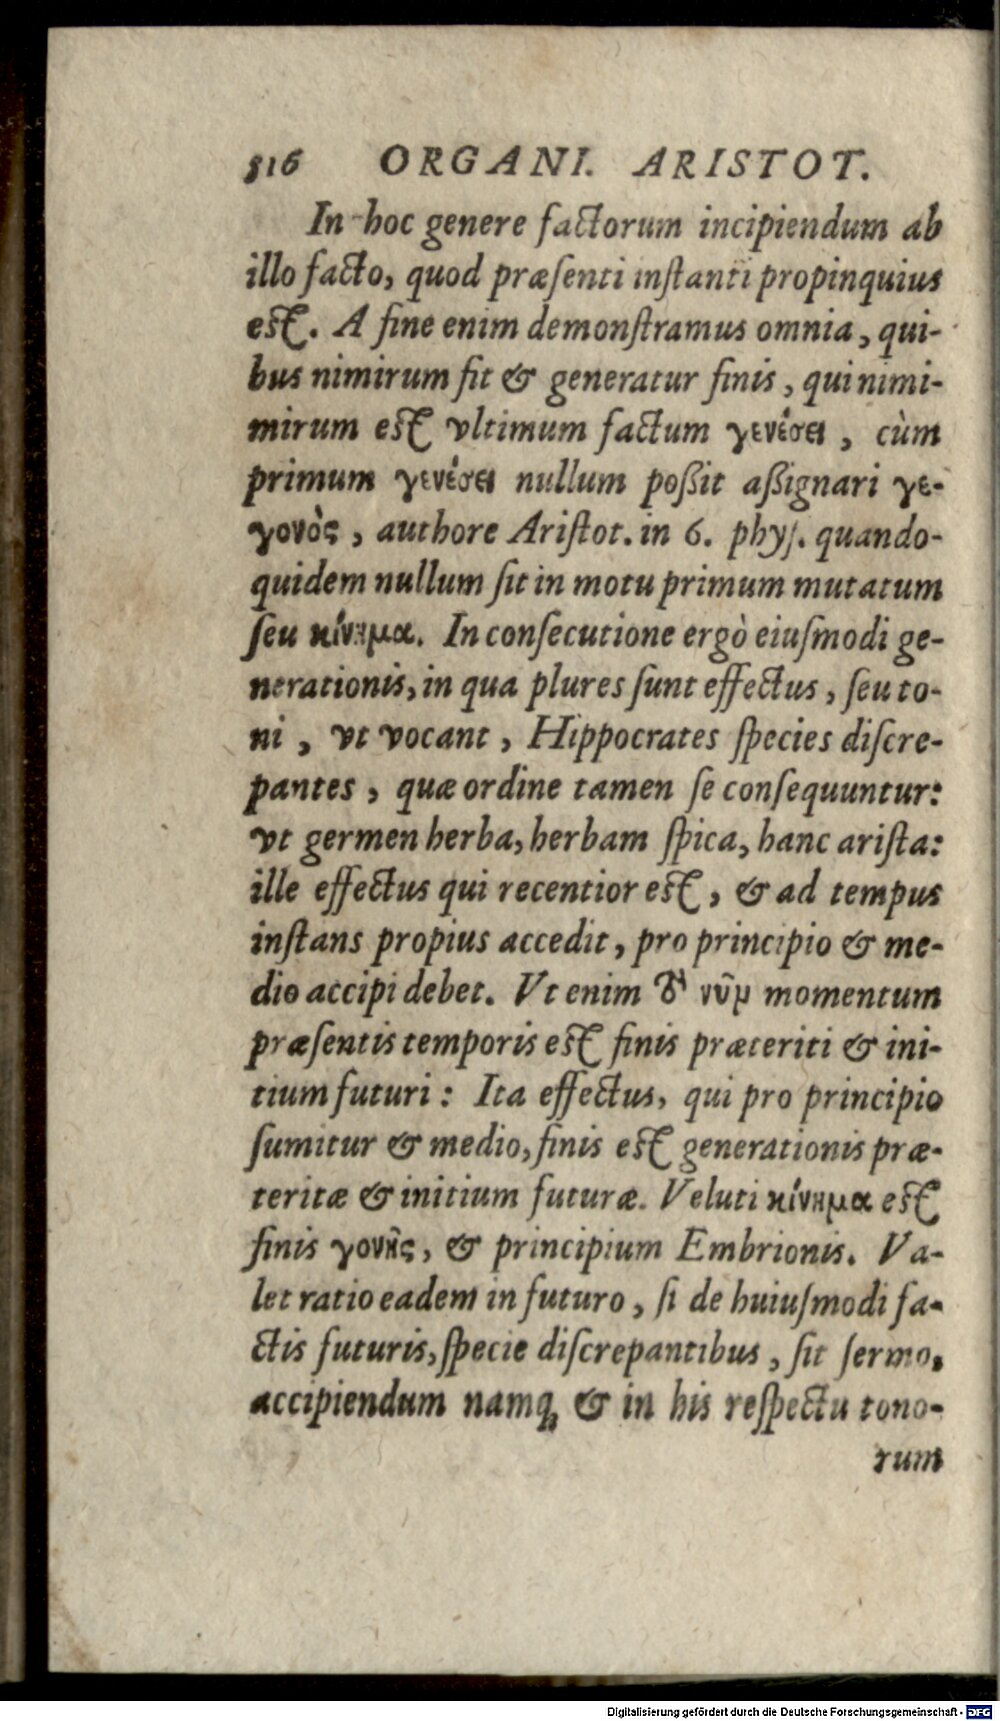 816 ORGANI. ARISTOT.
In hoc genere factorum incipiendum ab
illo facto, quod præſenti inſtanti propinquius
eſt. A fine enim demonſtramus omnia, qui-
bus nimirum fit & generatur finis, qui nimi-
mirum eſt vltimum factum γενέσει, cùm
primum γενέσει nullum poßit aßignari γε-
γονὸς, authore Ariſtot. in 6. phyſ. quando-
quidem nullum ſit in motu primum mutatum
ſeu κίνημα. In conſecutione ergò eiuſmodi ge-
nerationis, in qua plures ſunt effectus, ſeu to-
ni, vt vocant, Hippocrates ſpecies diſcre-
pantes, quæ ordine tamen ſe conſequuntur:
vt germen herba, herbam ſpica, hanc ariſta:
ille effectus qui recentior eſt, & ad tempus
inſtans propius accedit, pro principio & me-
dio accipi debet. Vt enim νῦν momentum
præſentis temporis eſt finis præteriti & ini-
tium futuri: Ita effectus, qui pro principio
ſumitur & medio, finis eſt generationis præ-
teritæ & initium futuræ. Veluti κίνημα eſt
finis γονῆς, & principium Embrionis. Va-
let ratio eadem in futuro, ſi de huiuſmodi fa-
ctis futuris, ſpecie diſcrepantibus, ſit ſermo,
accipiendum namq́; & in his reſpectu tono-
rum
Digitalisierung gefördert durch die Deutsche Forschungsgemeinschaft - DFG